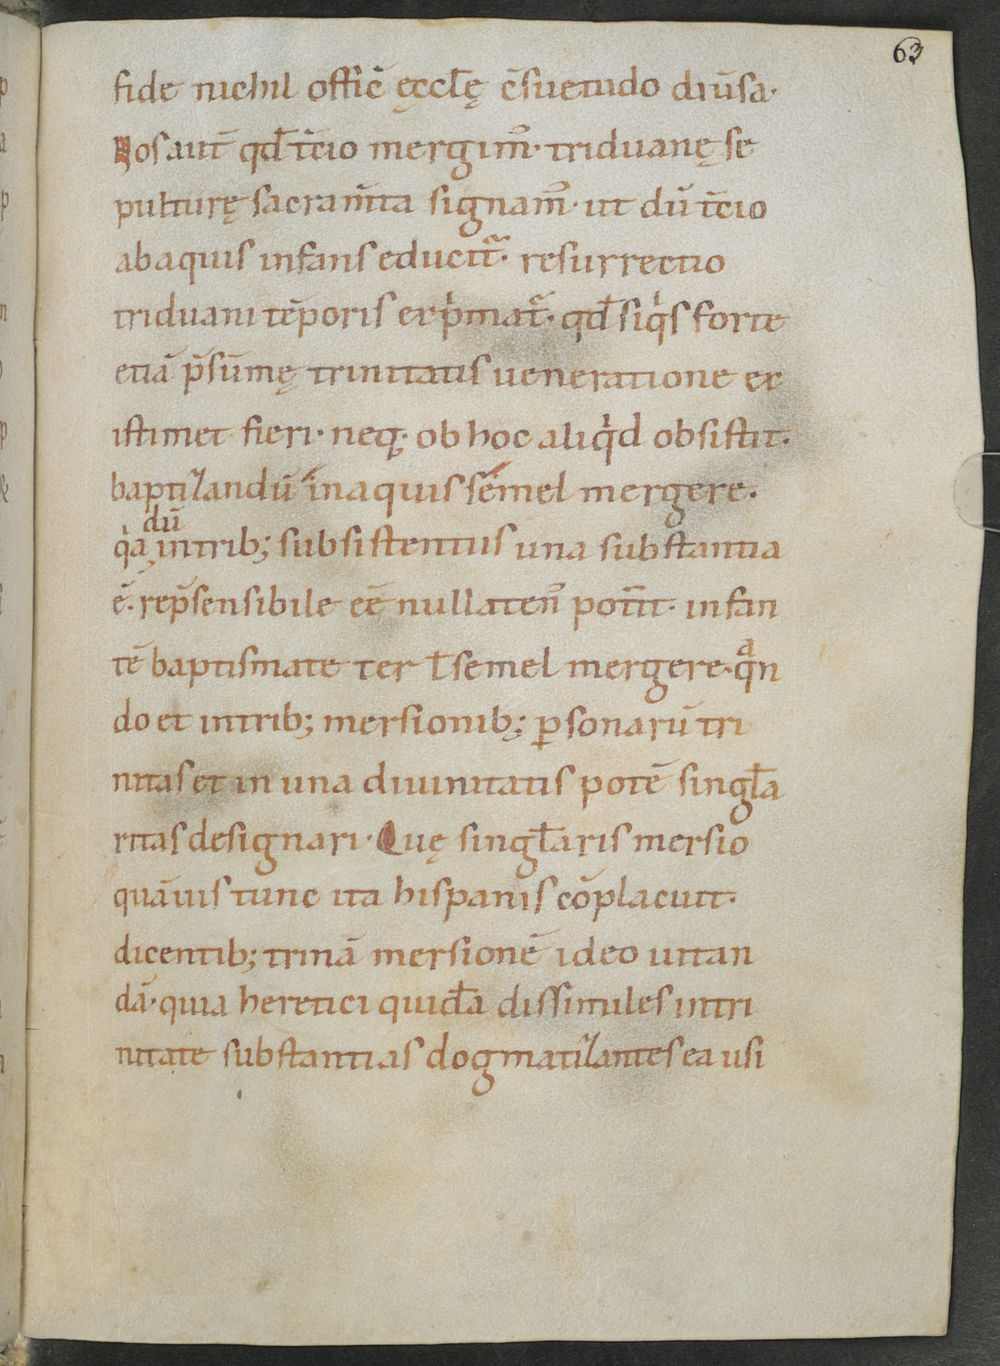 63
fide nichil offic̄ ęccl̄ę c̄suetudo diūsa·
Nos aut̄ qd̄ t̄cio mergim᷒· triduanę se
pulturę sacram̄ta signam᷒· ut dū t̄cio
ab aquis infans educit᷑· resurrectio
triduani tēporis exp̍mat᷑· qd̄ si q̍s forte
etiā p̄ sūmę trinitatis ueneratione ex
istimet fieri· neq; ob hoc aliq̍d obsistit·
baptizandū in aquis semel mergere·
dū
q̍a in trib; subsistentiis una substantia
ē· rep̄sensibile eē nullaten᷒ pot̄it· infan
tē baptismate ter ł semel mergere· qͣn
do et in trib; mersionib; ꝑsonarū tri
nitas et in una diuinitatis potē singl̄a
ritas designari· Quę singl̄aris mersio
quāuis tunc ita hispanis cōplacuit·
dicentib; trinā mersionē ideo uitan
dā· quia heretici quidā dissimiles in tri
nitate substantias dogmatizantes ea usi